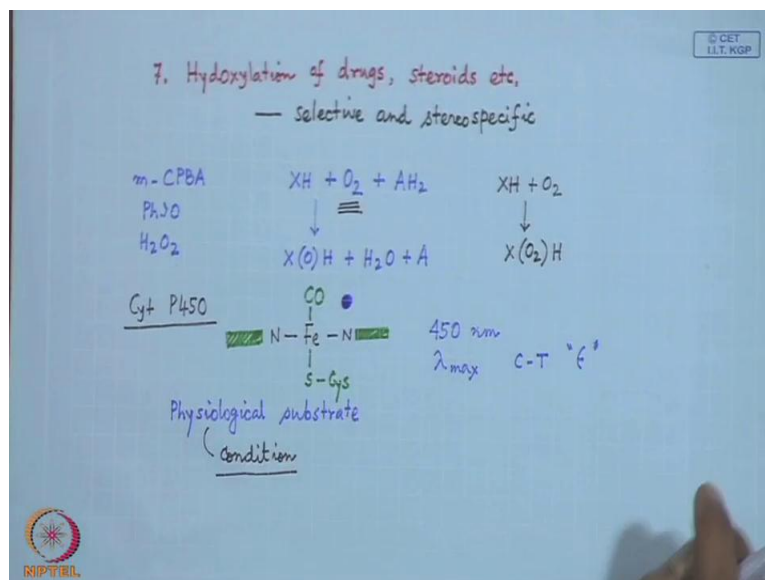 © CET
I.I.T. KGP
7. Hydoxylation of drugs, steroids etc.
— selective and stereospecific
m-CPBA
PhIO
H2O2
XH + O2 + AH2
↓
X(O)H + H2O + A
XH + O2
↓
X(O2)H
Cyt P450
CO
N – Fe – N
S – Cys
450 nm
λmax C-T "ε"
Physiological substrate
condition
NPTEL